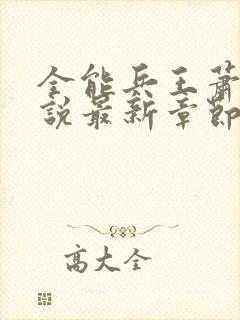 全能兵王蕭
說最新章節
高大全